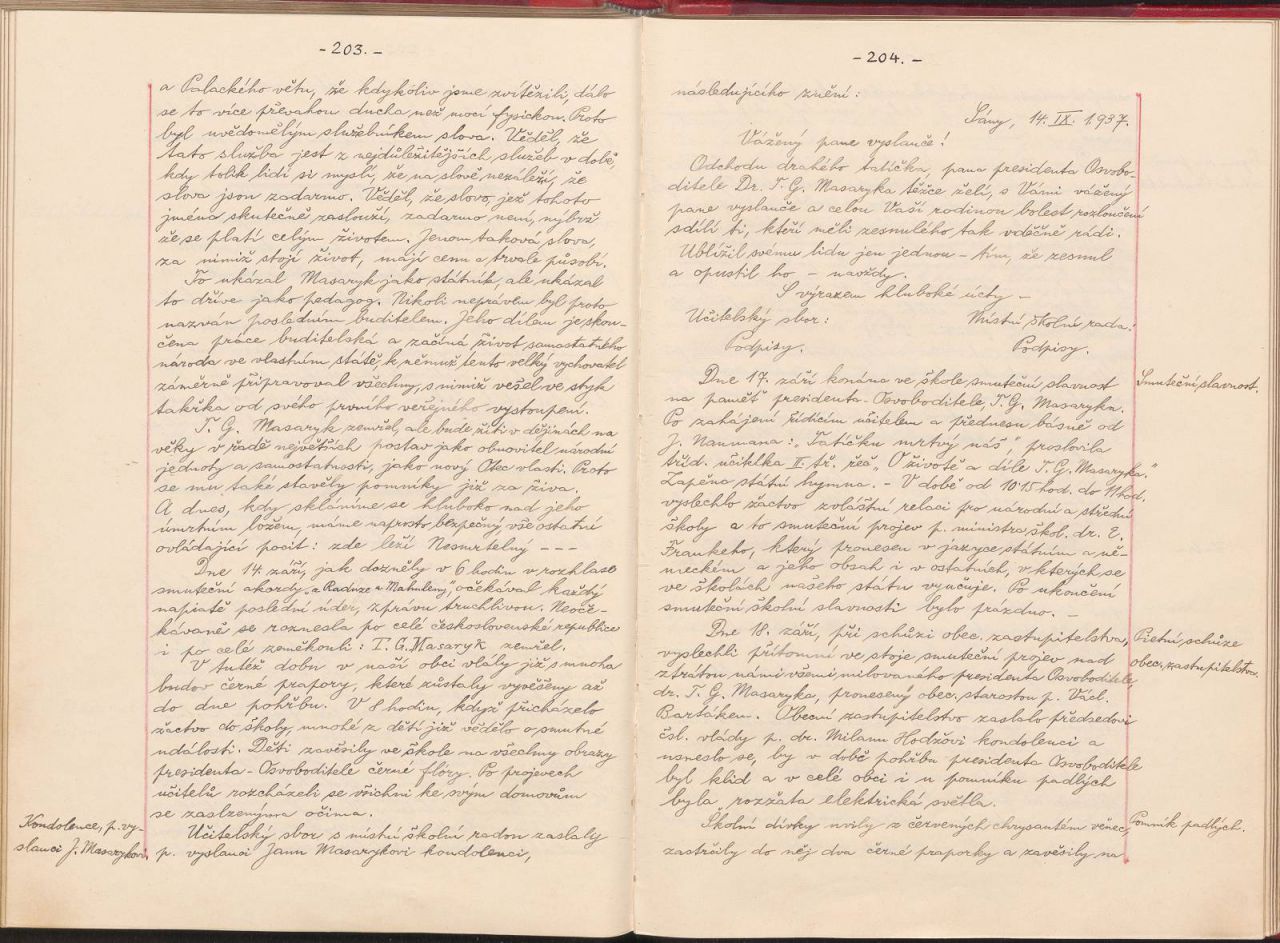 - 203. -
a Palackého větu, že kdykoliv jsme zvítězili, dálo
se to více převahou ducha než mocí fysickou. Proto
byl uvědomělým služebníkem slova. Věděl, že
tato služba jest z nejdůležitějších služeb v době,
kdy tolik lidí si myslí, že na slově nezáleží, že
slova jsou zadarmo. Věděl, že slovo, jež tohoto
jména skutečně zaslouží, zadarmo není, nýbrž
že se platí celým životem. Jenom taková slova,
za nimiž stojí život, mají cenu a trvale působí.
To ukázal Masaryk jako státník, ale ukázal
to dříve jako pedagog. Nikoli neprávem byl proto
nazván posledním buditelem. Jeho dílem je skon-
čena práce buditelská a začíná život samostatného
národa ve vlastním státě, k němuž tento velký vychovatel
záměrně připravoval všechny, s nimiž vešel ve styk
takřka od svého prvního veřejného vystoupení.
T. G. Masaryk zemřel, ale bude žíti v dějinách na
věky v řadě největších postav jako obnovitel národní
jednoty a samostatnosti, jako nový Otec vlasti. Proto
se mu také stavěly pomníky již za živa.
A dnes, kdy skláníme se hluboko nad jeho
úmrtním ložem, máme naprosto bezpečný, vše ostatní
ovládající pocit: zde leží Nesmrtelný - - -
Dne 14. září, jak dozněly v 6 hodin v rozhlase
smuteční akordy „z Raduze a Mahuleny", očekával každý
napiatě poslední úder, zprávu truchlivou. Neoče-
kávaně se roznesla po celé československé republice
i po celé zeměkouli: T. G. Masaryk zemřel.
V tutéž dobu v naší obci vlály již s mnoha
budov černé prapory, které zůstaly vyvěšeny až
do dne pohřbu. V 8 hodin, když přicházelo
žactvo do školy, mnohé z dětí již vědělo o smutné
události. Děti zavěsily ve škole na všechny obrazy
presidenta - Osvoboditele černé flóry. Po projevech
učitelů rozcházeli se všichni ke svým domovům
se zaslzenýma očima.
Kondolence, p. vy-
slanci J. Masarykovi.
Učitelský sbor s místní školní radou zaslaly
p. vyslanci Janu Masarykovi kondolenci,
- 204. -
následujícího znění:
Sány, 14. IX. 1937.
Vážený pane vyslanče!
Odchodu drahého tatíčka, pana presidenta Osvobo-
ditele Dr. T. G. Masaryka těžce želí, s Vámi vážený
pane vyslanče a celou Vaší rodinou bolest rozloučení
sdílí ti, kteří měli zesnulého tak vděčně rádi.
Ublížil svému lidu jen jednou - tím, že zesnul
a opustil ho - navždy.
S výrazem hluboké úcty -
Učitelský sbor: Místní školní rada:
Podpisy. Podpisy.
Dne 17. září konána ve škole smuteční slavnost
Smuteční slavnost.
na paměť presidenta - Osvoboditele, T. G. Masaryka.
Po zahájení řídícím učitelem a přednesu básně od
J. Naumana: „Tatíčku mrtvý náš", proslovila
tříd. učitelka II. tř. řeč „O životě a díle T. G. Masaryka."
Zapěna státní hymna. - V době od 10·15 hod. do 11 hod.
vyslechlo žactvo zvláštní relaci pro národní a střední
školy a to smuteční projev p. ministra škol. dr. E.
Frankeho, který pronesen v jazyce státním a ně-
meckém a jeho obsah i v ostatních, v kterých se
ve školách našeho státu vyučuje. Po ukončení
smuteční školní slavnosti bylo prázdno. -
Dne 18. září, při schůzi obec. zastupitelstva,
Pietní schůze
obec. zastupitelstva.
vyslechli přítomní ve stoje smuteční projev nad
ztrátou námi všemi milovaného presidenta Osvoboditele,
dr. T. G. Masaryka, pronesený obec. starostou p. Václ.
Bartákem. Obecní zastupitelstvo zaslalo předsedovi
čsl. vlády p. dr. Milanu Hodžovi kondolenci a
usneslo se, by v době pohřbu presidenta Osvoboditele
byl klid a v celé obci i u pomníku padlých
byla rozžata elektrická světla.
Školní dívky uvily z červených chrysantém věnec,
Pomník padlých.
zastrčily do něj dva černé praporky a zavěsily na